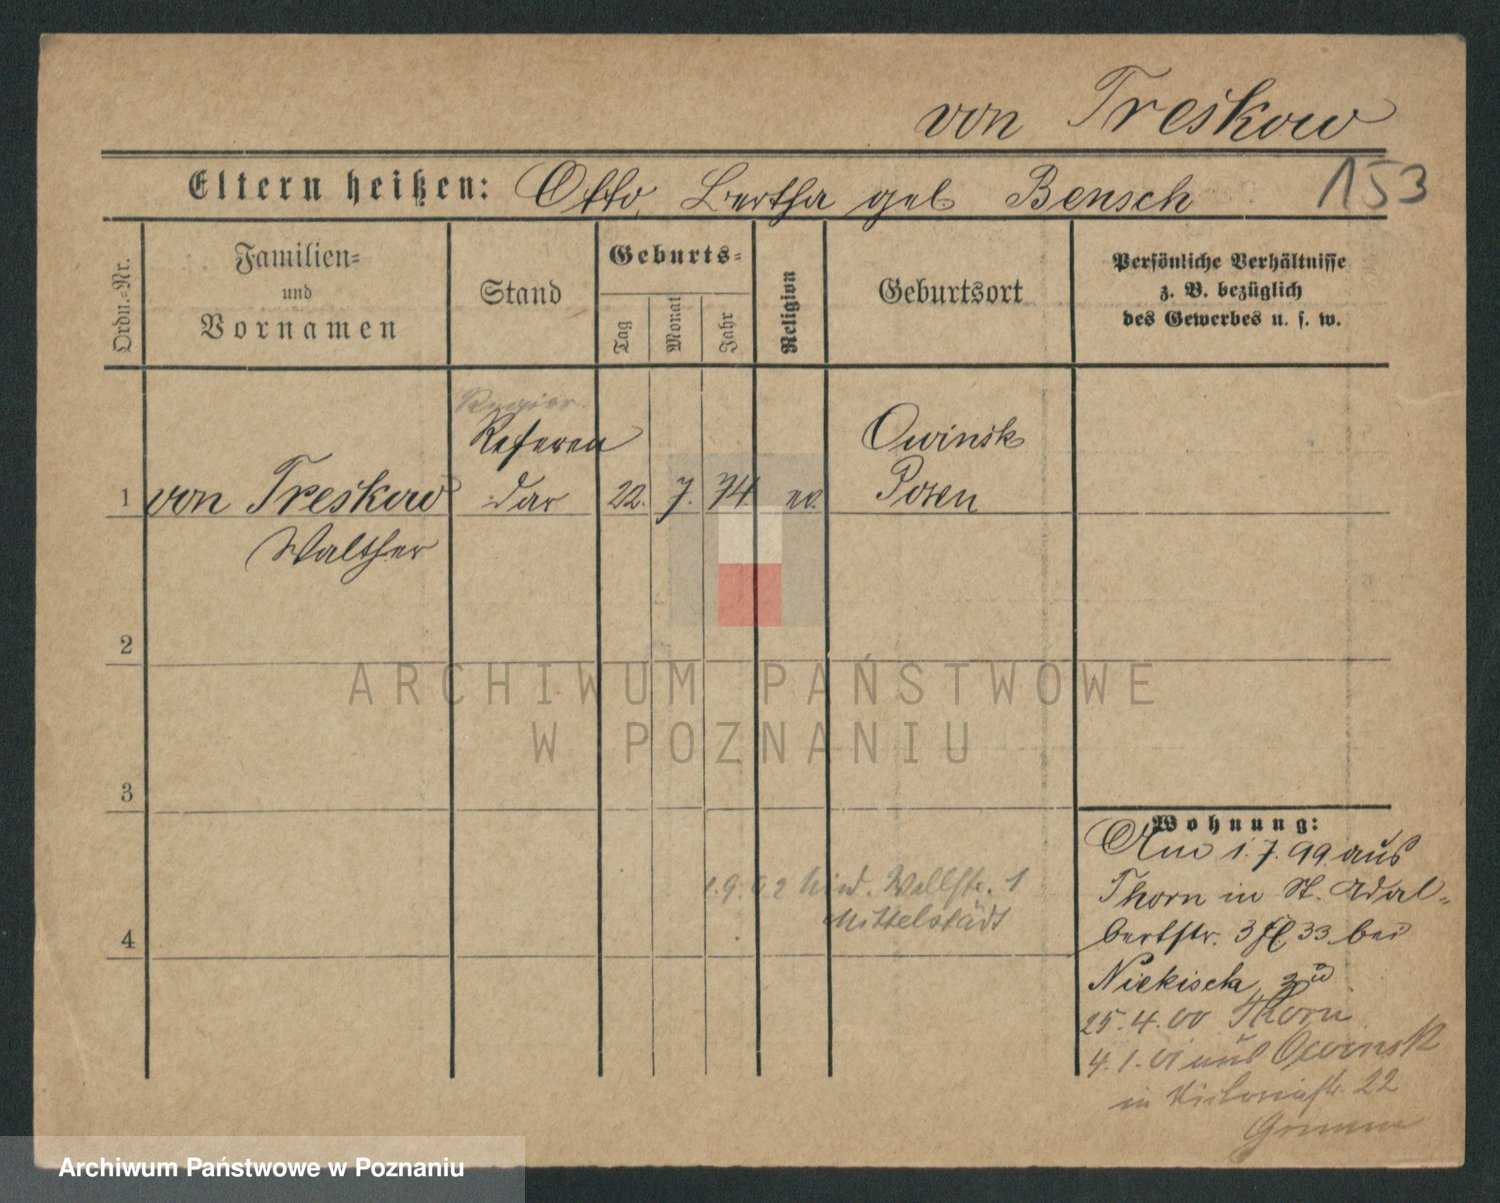 von Treskow
Eltern heißen: Otto, Bertha geb Bensch
153
Ordn.=Nr.
Familien=
und
Vornamen
Stand
Geburts=
Tag
Monat
Jahr
Religion
Geburtsort
Persönliche Verhältnisse
z. B. bezüglich
des Gewerbes u. s. w.
Regier.
Referen
dar
1 von Treskow
Walther
22. 7. 74. ev.
Owinsk
Posen
2
ARCHIWUM PAŃSTWOWE
W POZNANIU
3
4
1.9.02 Wallstr. 1
Mittelstädt
Wohnung:
Am 1.7.99 aus
Thorn in St. Adal=
bertstr. 3 33 bei
Niekisch zu
25.4.00 Thorn
4.1.01 aus Owinsk
in Victoriastr. 22
Grimm
Archiwum Państwowe w Poznaniu